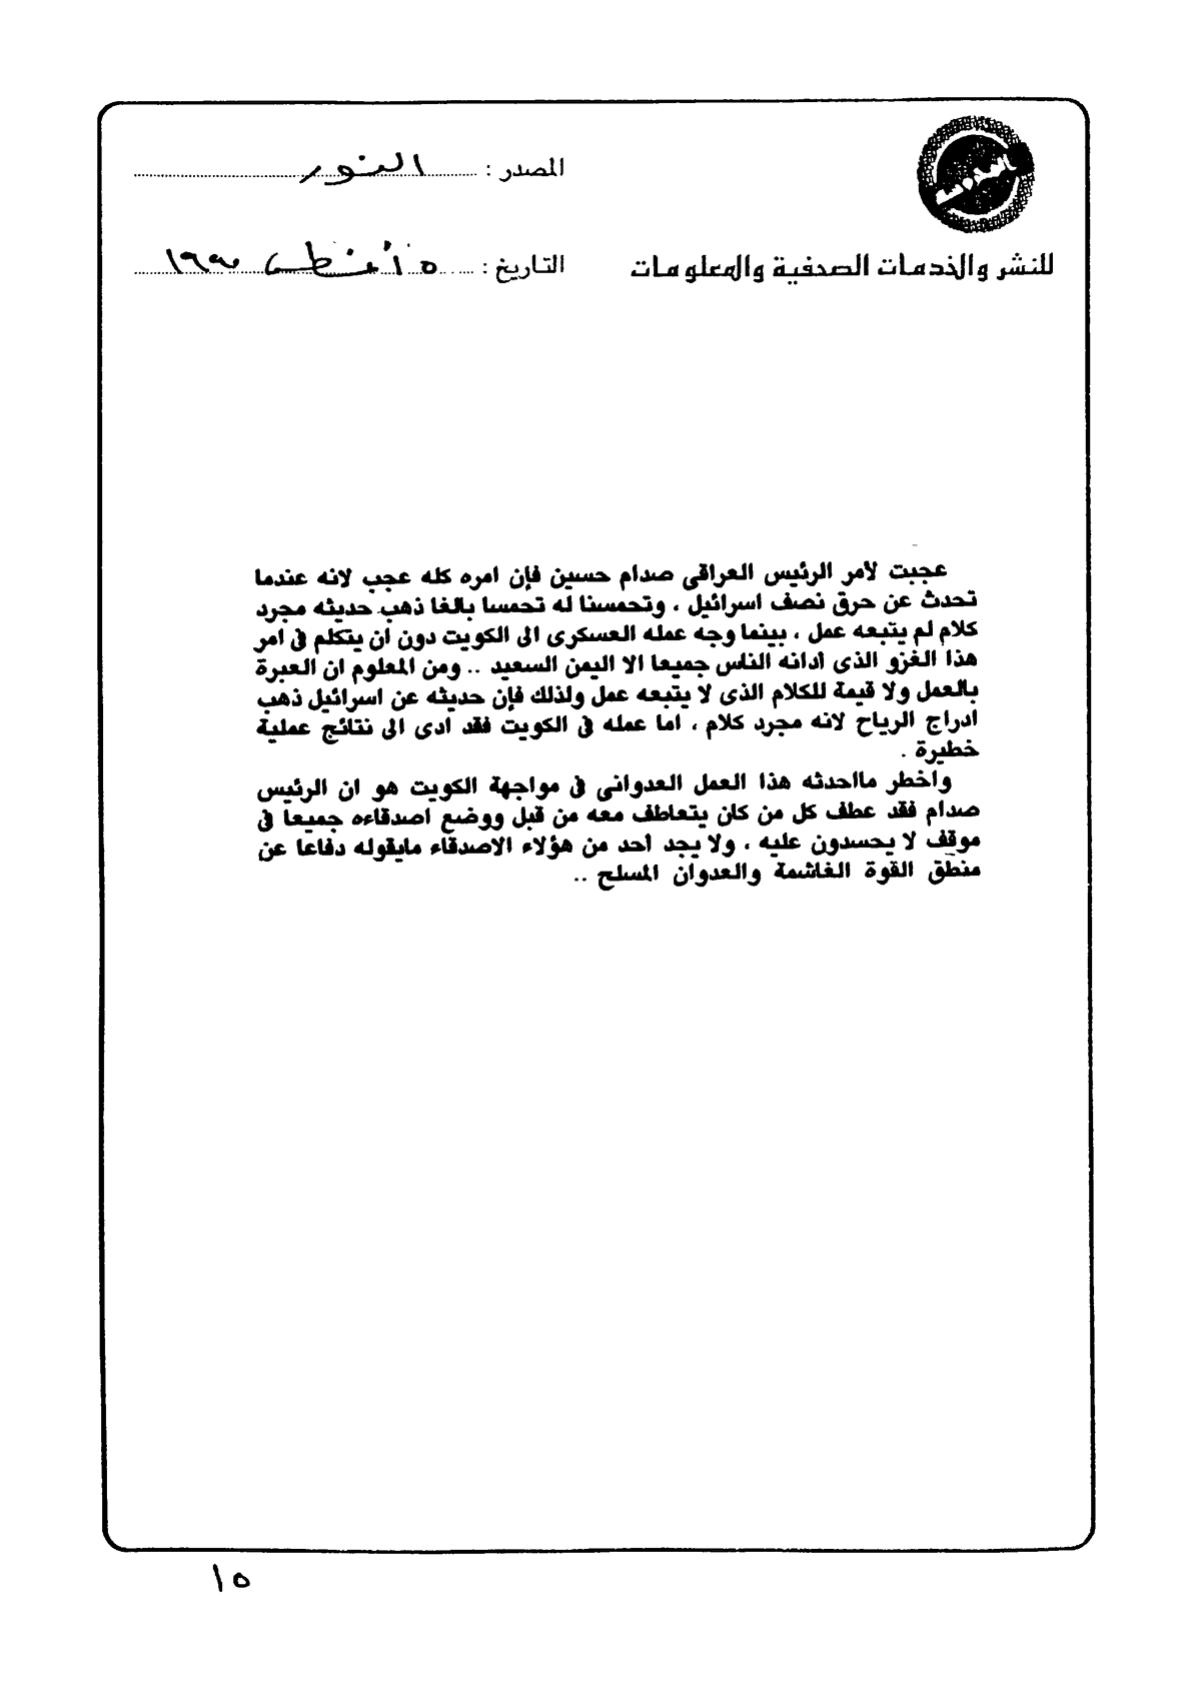 المصدر : النور
للنشر والخدمات الصحفية والمعلومات
التاريخ : ١٥ أغسطس ١٩٩٠
عجبت لأمر الرئيس العراقى صدام حسين فإن امره كله عجب لانه عندما
تحدث عن حرق نصف اسرائيل ، وتحمسنا له تحمسا بالغا ذهب حديثه مجرد
كلام لم يتبعه عمل ، بينما وجه عمله العسكرى الى الكويت دون ان يتكلم فى امر
هذا الغزو الذى أدانه الناس جميعا الا اليمن السعيد .. ومن المعلوم ان العبرة
بالعمل ولا قيمة للكلام الذى لا يتبعه عمل ولذلك فإن حديثه عن اسرائيل ذهب
ادراج الرياح لانه مجرد كلام ، اما عمله فى الكويت فقد ادى الى نتائج عملية
خطيرة .
واخطر مااحدثه هذا العمل العدوانى فى مواجهة الكويت هو ان الرئيس
صدام فقد عطف كل من كان يتعاطف معه من قبل ووضع اصدقاءه جميعا فى
موقف لا يحسدون عليه ، ولا يجد أحد من هؤلاء الاصدقاء مايقوله دفاعا عن
منطق القوة الغاشمة والعدوان المسلح ..
١٥